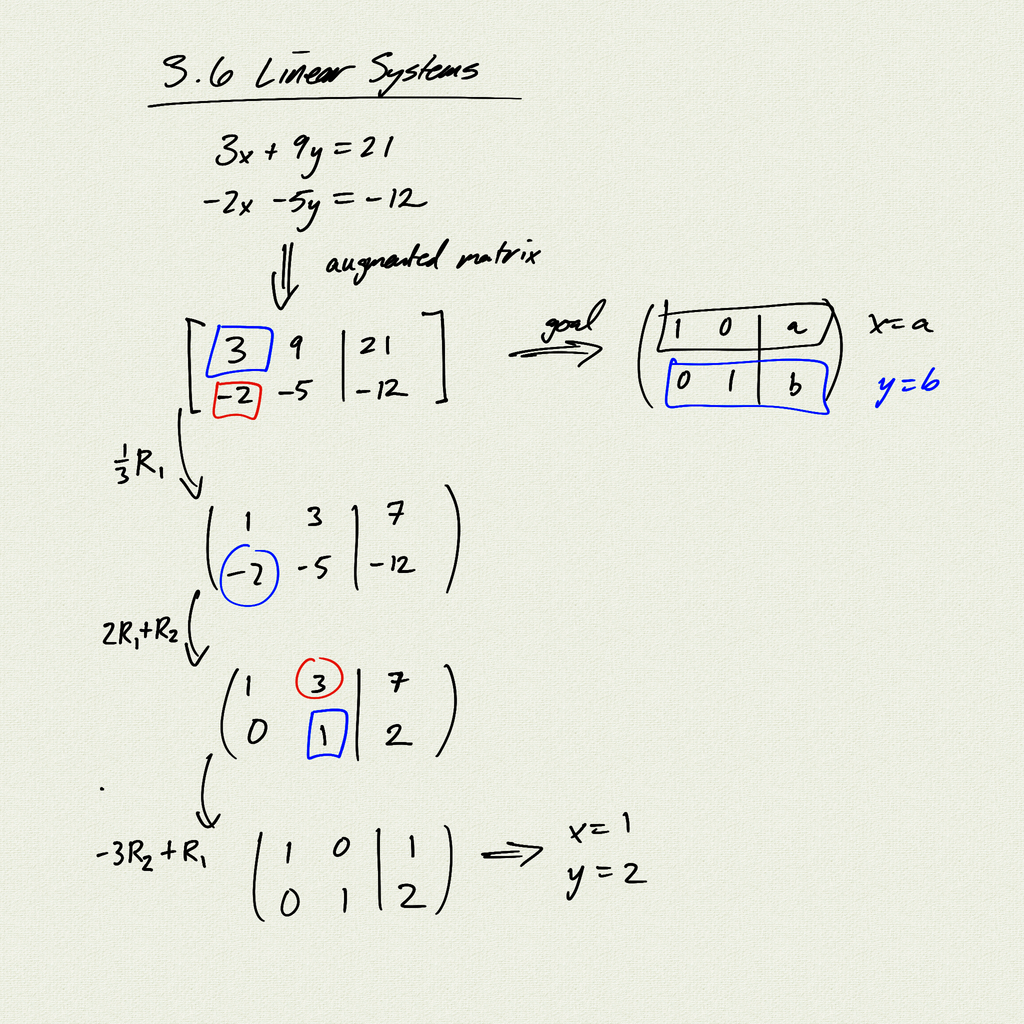 3.6 Linear Systems
3x + 9y = 21
-2x -5y = -12
augmented matrix
[ 3 9 | 21 ]
[ -2 -5 | -12 ]
goal
( 1 0 | a ) x = a
( 0 1 | b ) y = b
1/3 R₁
( 1 3 | 7 )
( -2 -5 | -12 )
2R₁+R₂
( 1 3 | 7 )
( 0 1 | 2 )
-3R₂ + R₁
( 1 0 | 1 ) x = 1
( 0 1 | 2 ) y = 2